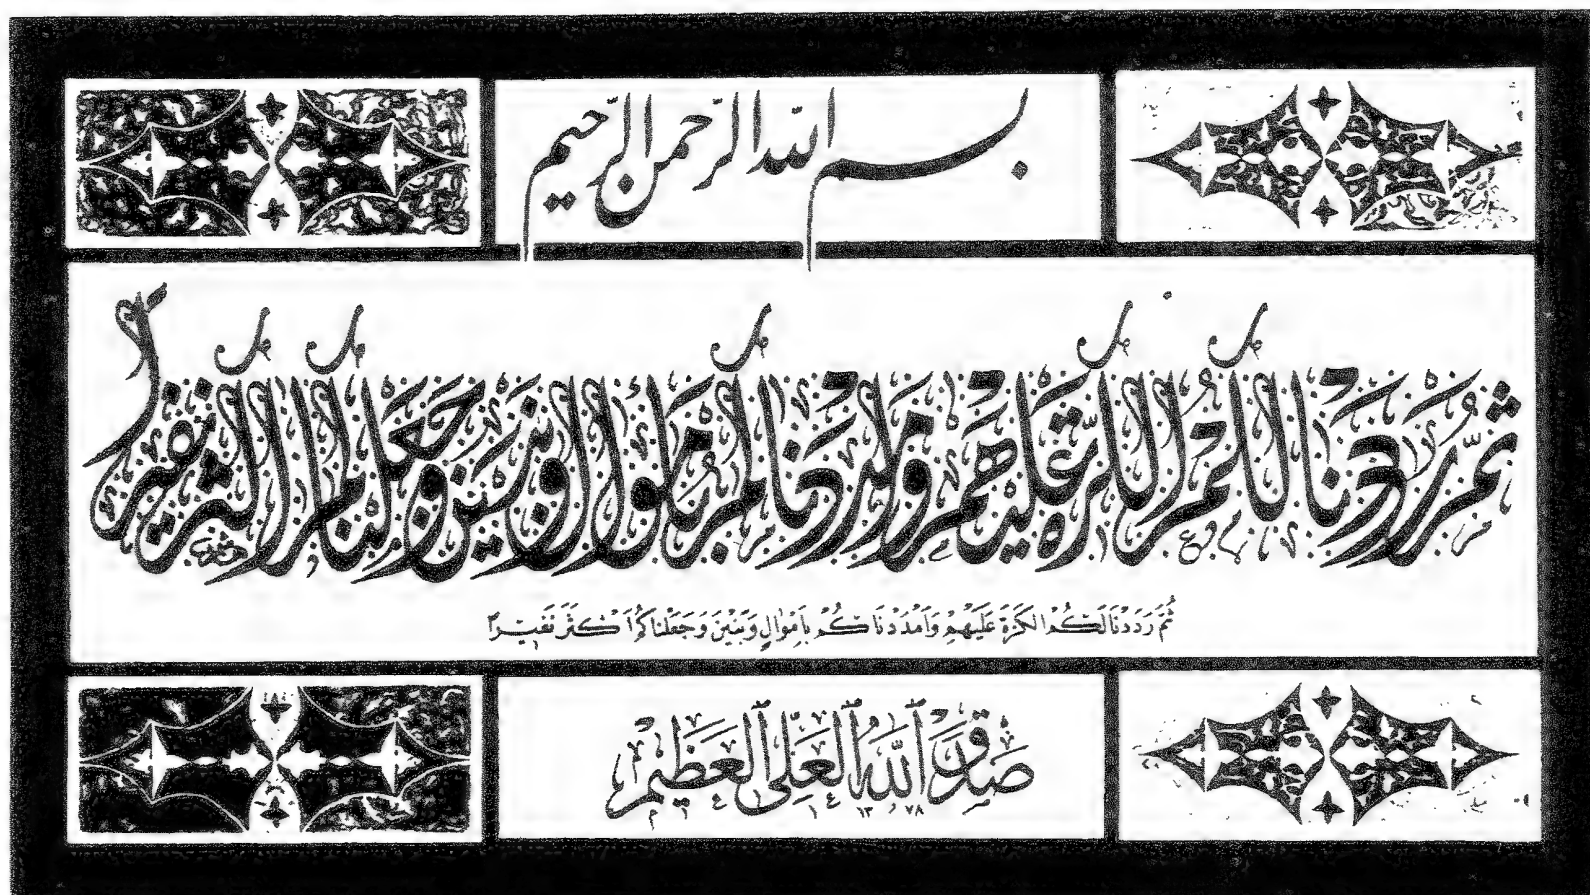 بسم الله الرحمن الرحيم
ثُمَّ رَدَدْنَا لَكُمُ الْكَرَّةَ عَلَيْهِمْ وَأَمْدَدْنَاكُم بِأَمْوَالٍ وَبَنِينَ وَجَعَلْنَاكُمْ أَكْثَرَ نَفِيرًا
ثُمَّ رَدَدْنَا لَكُمُ الكَرَّةَ عَلَيْهِمْ وَاَمْدَدْنَاكُمْ بِاَمْوَالٍ وَبَنِيْنَ وَجَعَلْنَاكُمْ اَكْثَرَ نَفِيرًا
صَدَقَ ٱللَّهُ ٱلعَلِيُّ ٱلعَظِيمُ